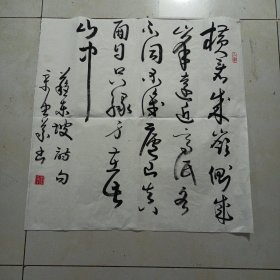 横看成岭侧成
峰远近高低各
不同不识庐山真
面目只缘身在此
山中
苏东坡诗句